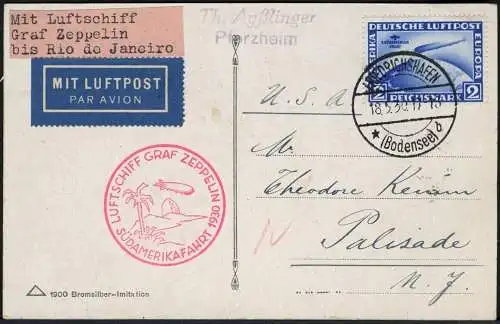 Mit Luftschiff
Graf Zeppelin
bis Rio de Janeiro
MIT LUFTPOST
PAR AVION
Th. Aeßlinger
Pforzheim
DEUTSCHE LUFTPOST
EUROPA
2 REICHSMARK 2
FRIEDRICHSHAFEN
18.5.30. 17-18
★ (Bodensee) b
U. S. A.
Mr
Theodore
Palisade
N. J.
LUFTSCHIFF GRAF ZEPPELIN
SÜDAMERIKAFAHRT 1930
1900 Bromsilber-Imitation